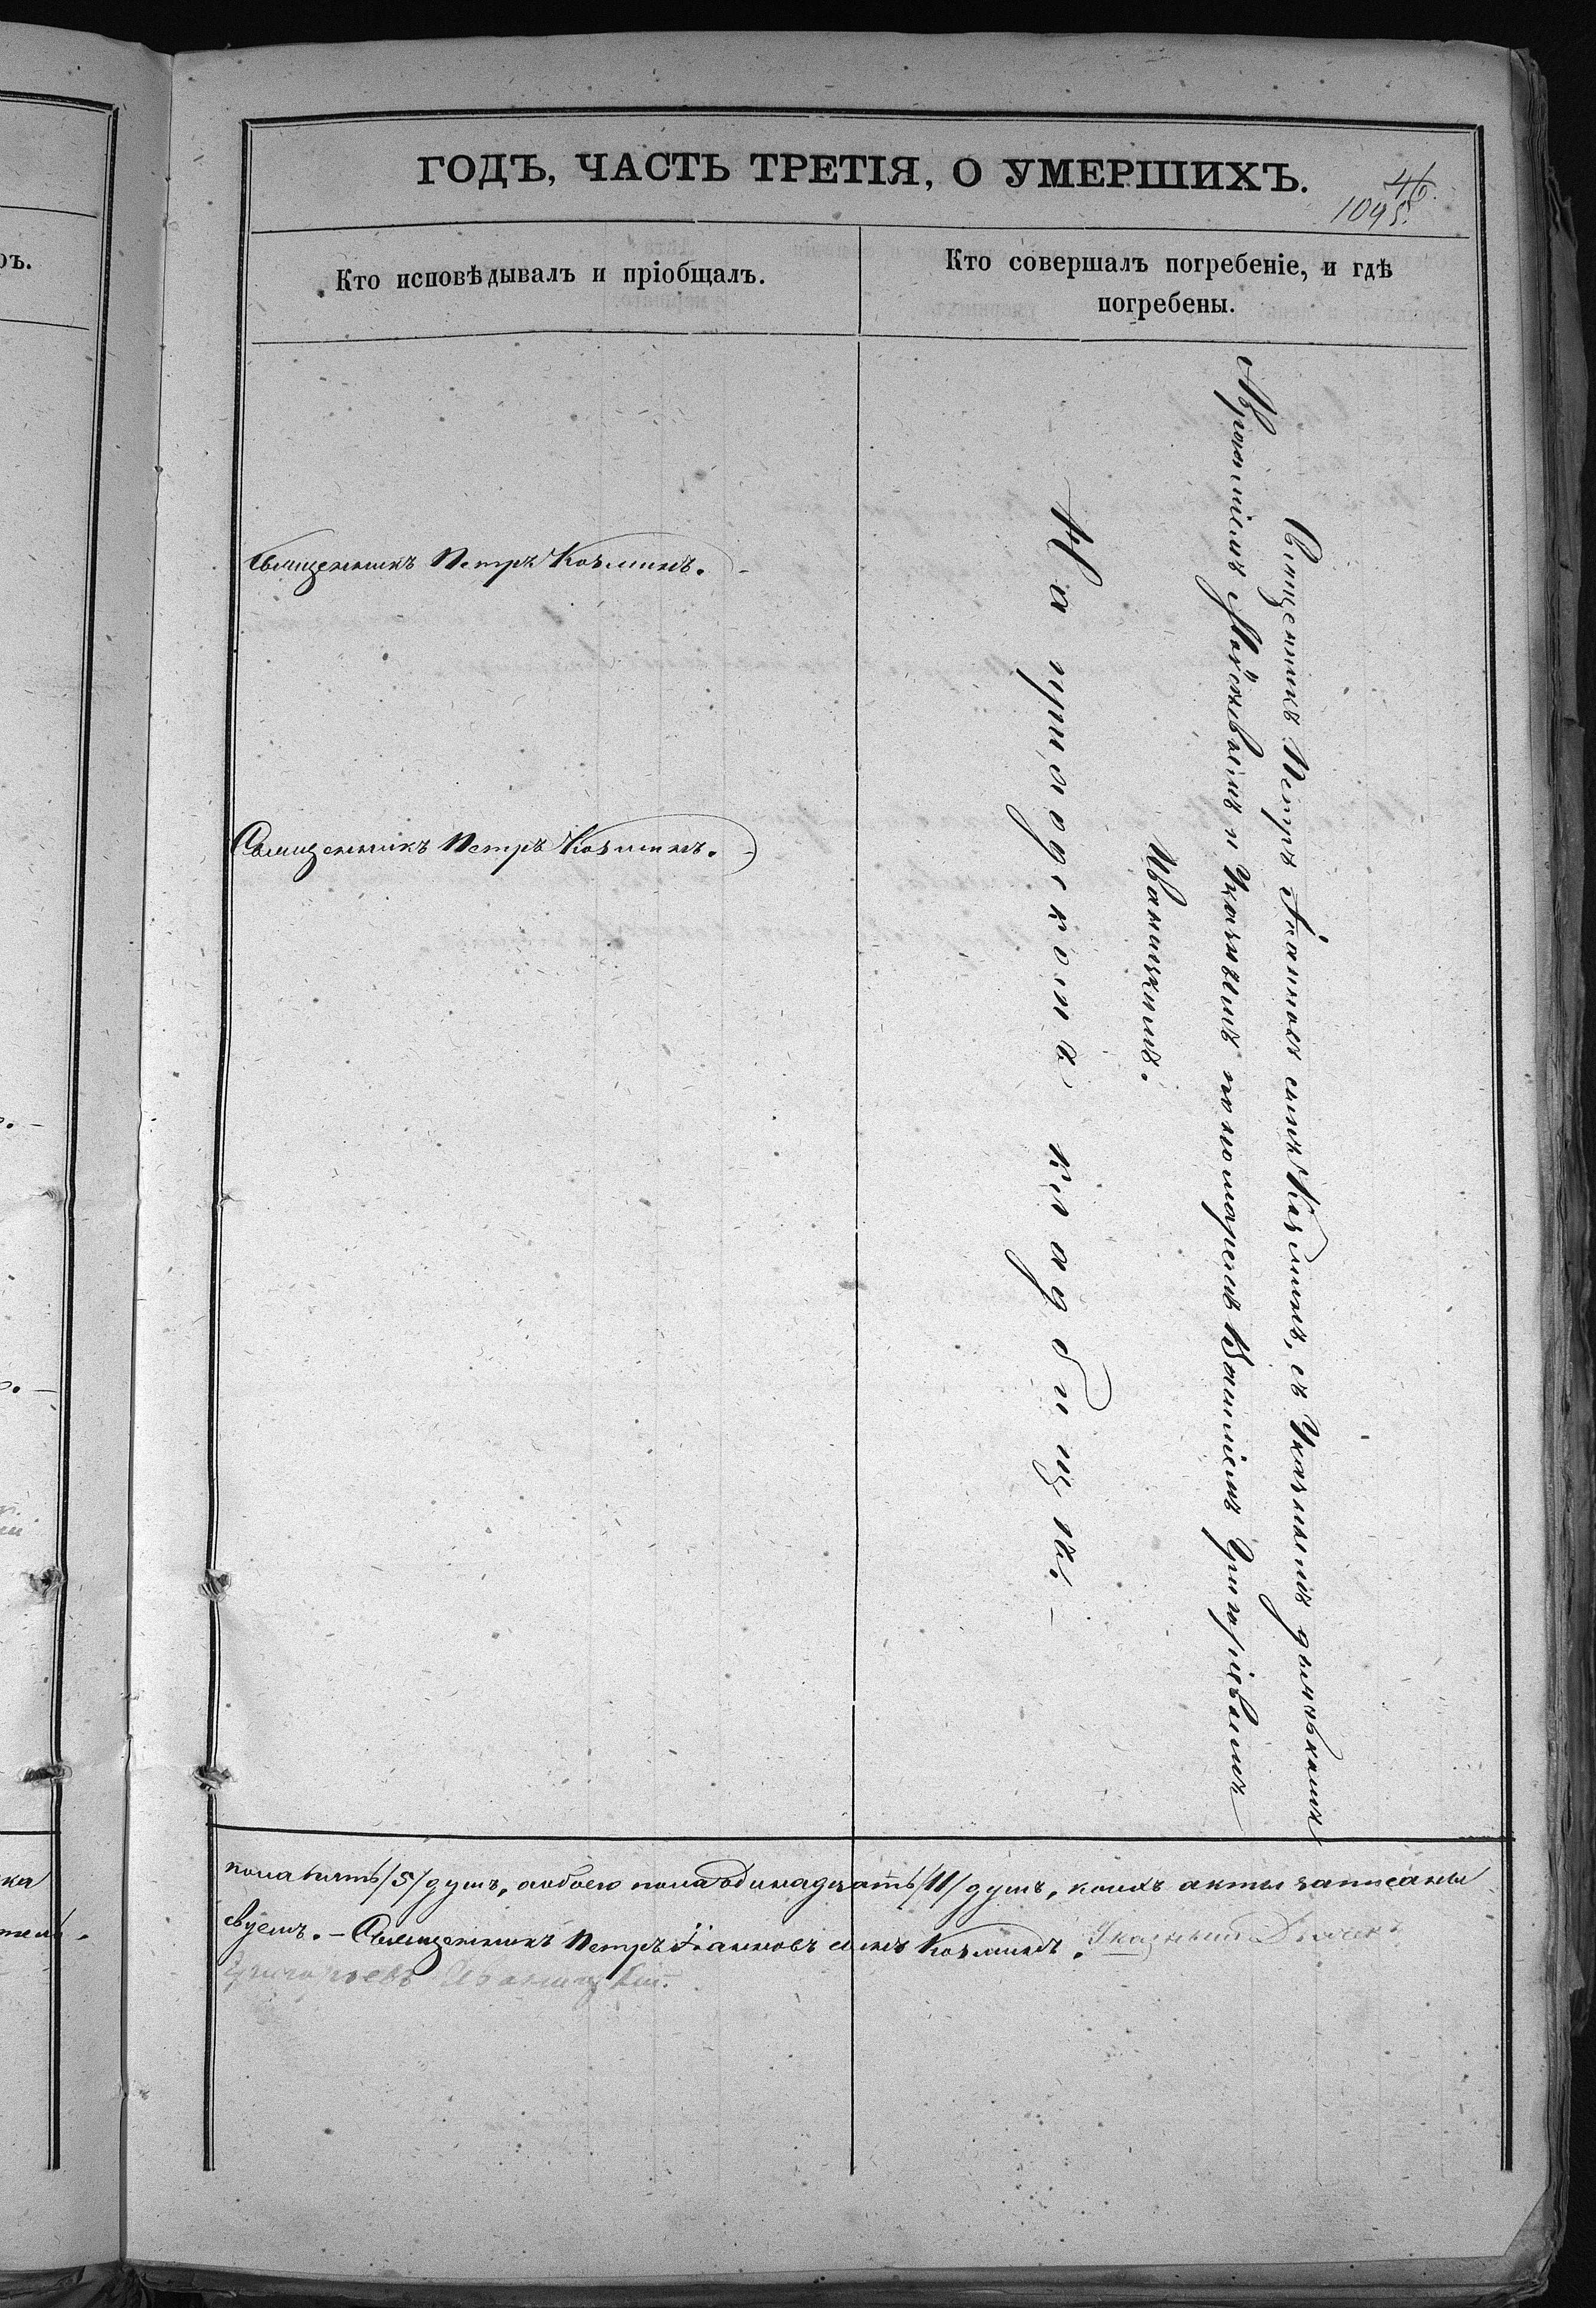 ГОДЪ, ЧАСТЬ ТРЕТІЯ, О УМЕРШИХЪ.
46.
1095.
Кто исповѣдывалъ и пріобщалъ.
Кто совершалъ погребеніе, и гдѣ
погребены.
Священникъ Петръ Козминъ.
Священникъ Петръ Козминъ.
Священникъ Петръ Іоанновъ сынъ Козминъ, съ Указнымъ дьячкомъ
Моѵсеевымъ и Указнымъ пономаремъ Григоріевымъ
Иваницкимъ.
На приходскомъ кладбищѣ.
пола пять /5/ душъ, а обоего пола одинадцать /11/ душъ, коихъ акты записаны
Священникъ Петръ Іоанновъ сынъ Козминъ. Указный Дьячекъ
Григорьевъ Иваницкій.